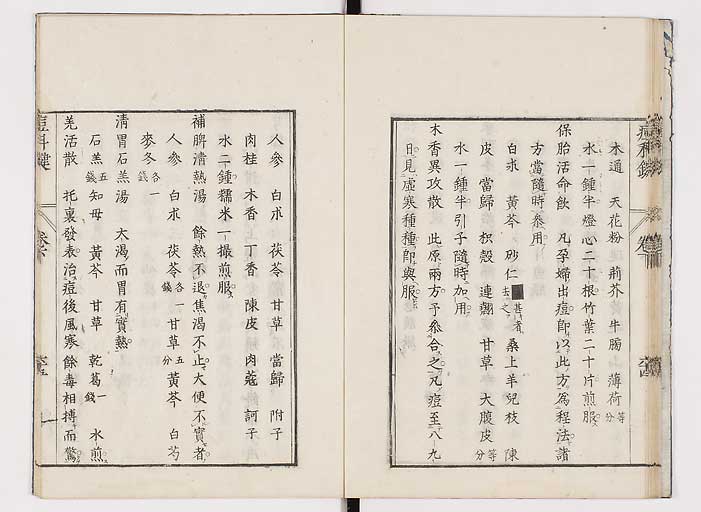 木通 天花粉 荊芥 牛膓 薄荷 等分
水一鍾半燈心二十根竹葉二十片煎服
保胎活命飲 凡孕婦出痘即以此方爲程法諸
方當隨時叅用
白朮 黃芩 砂仁 甚者去之 桑上羊兒枝 陳
皮 當歸 枳殼 連翹 甘草 大腹皮 等分
水一鍾半引子隨時加用
木香異攻散 此原兩方予叅合之凡痘至八九
日見虛寒種種卽與服
人參 白朮 茯苓 甘草 當歸 附子
肉桂 木香 丁香 陳皮 肉蔻 訶子
水二鍾糯米一撮煎服
補脾淸熱湯 餘熱不退焦渴不止大便不實者
人參 白朮 茯苓 各一錢 甘草 五分 黃芩 白芍
麥冬 各一錢
淸胃石羔湯 大渴而胃有實熱
石羔 五錢 知母 黃芩 甘草 乾葛 一錢 水煎
羌活散 托裏發表治痘後風寒餘毒相搏而驚